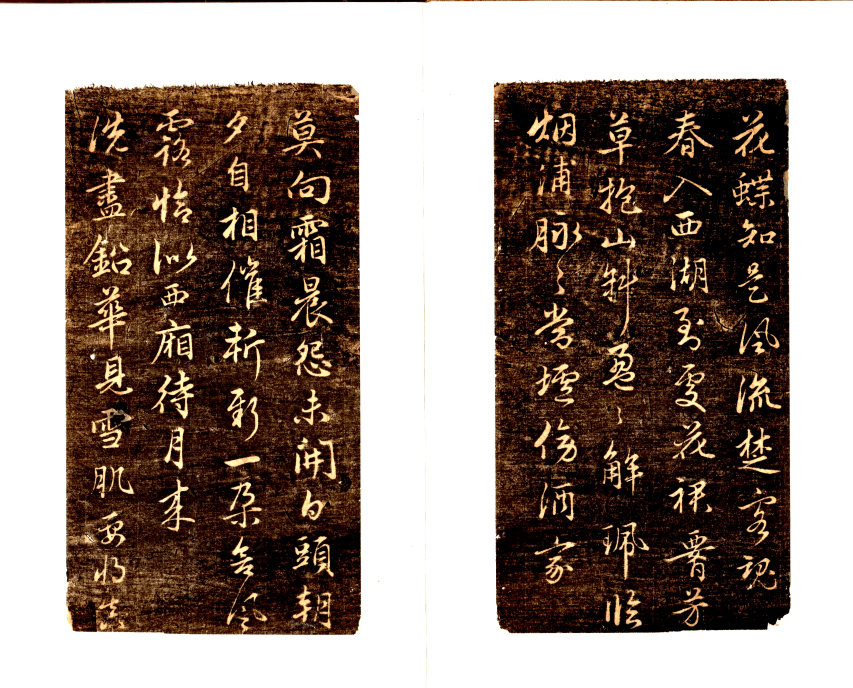 花蝶知是風流楚客魂
春入西湖到處花裙腰芳
草抱山斜盈〻解珮臨
烟浦脉〻當壚傍酒家
莫向霜晨怨未開白頭朝
夕自相催斬新一朵含風
露恰似西廂待月來
洗盡鉛華見雪肌要將真